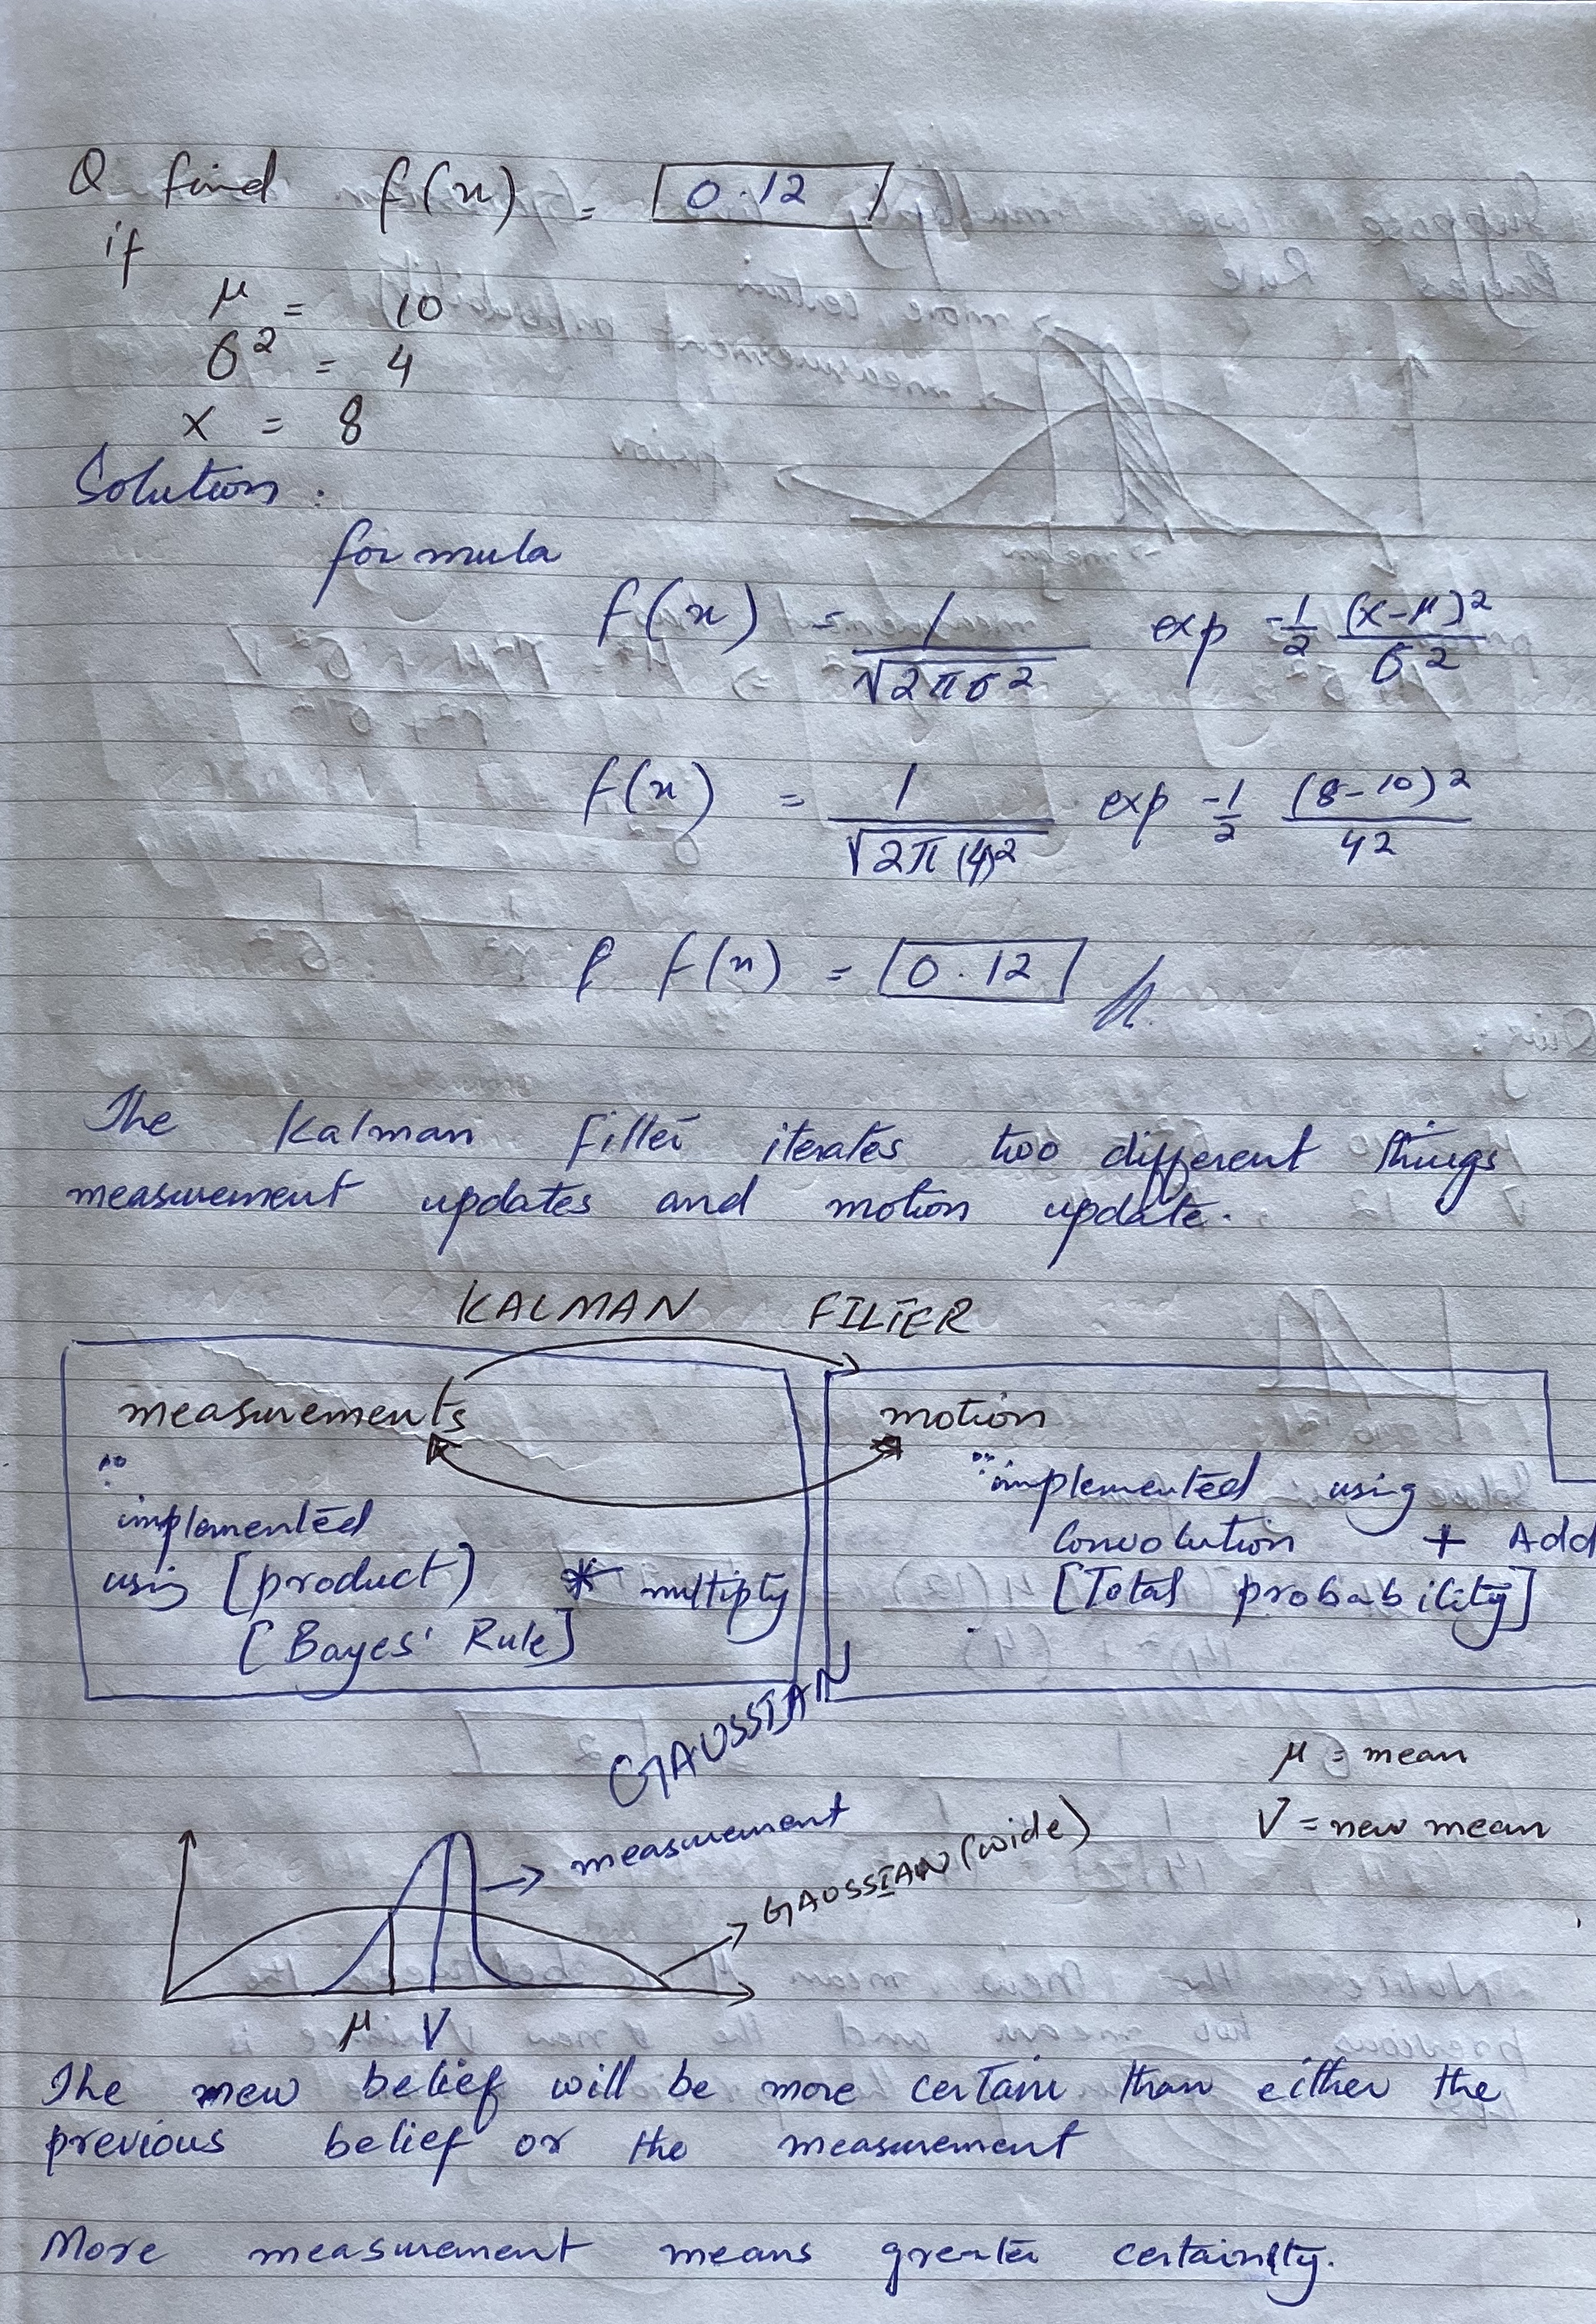 Q find f(x) = 0.12
if
μ = 10
σ² = 4
x = 8
Solution :
formula
f(x) = 1/√2πσ² exp -1/2 (x-μ)²/σ²
f(x) = 1/√2π(4)² exp -1/2 (8-10)²/42
f(x) = 0.12
The Kalman Filter iterates two different things
measurement updates and motion update.
KALMAN FILTER
measurements
implemented
using [product) * multiply
[Bayes' Rule]
motion
implemented using
Convolution + Add
[Total probability]
GAUSSIAN
μ = mean
V = new mean
measurement
GAUSSIAN (wide)
μ V
The new belief will be more certain than either the
previous belief or the measurement
More measurement means greater certainity.